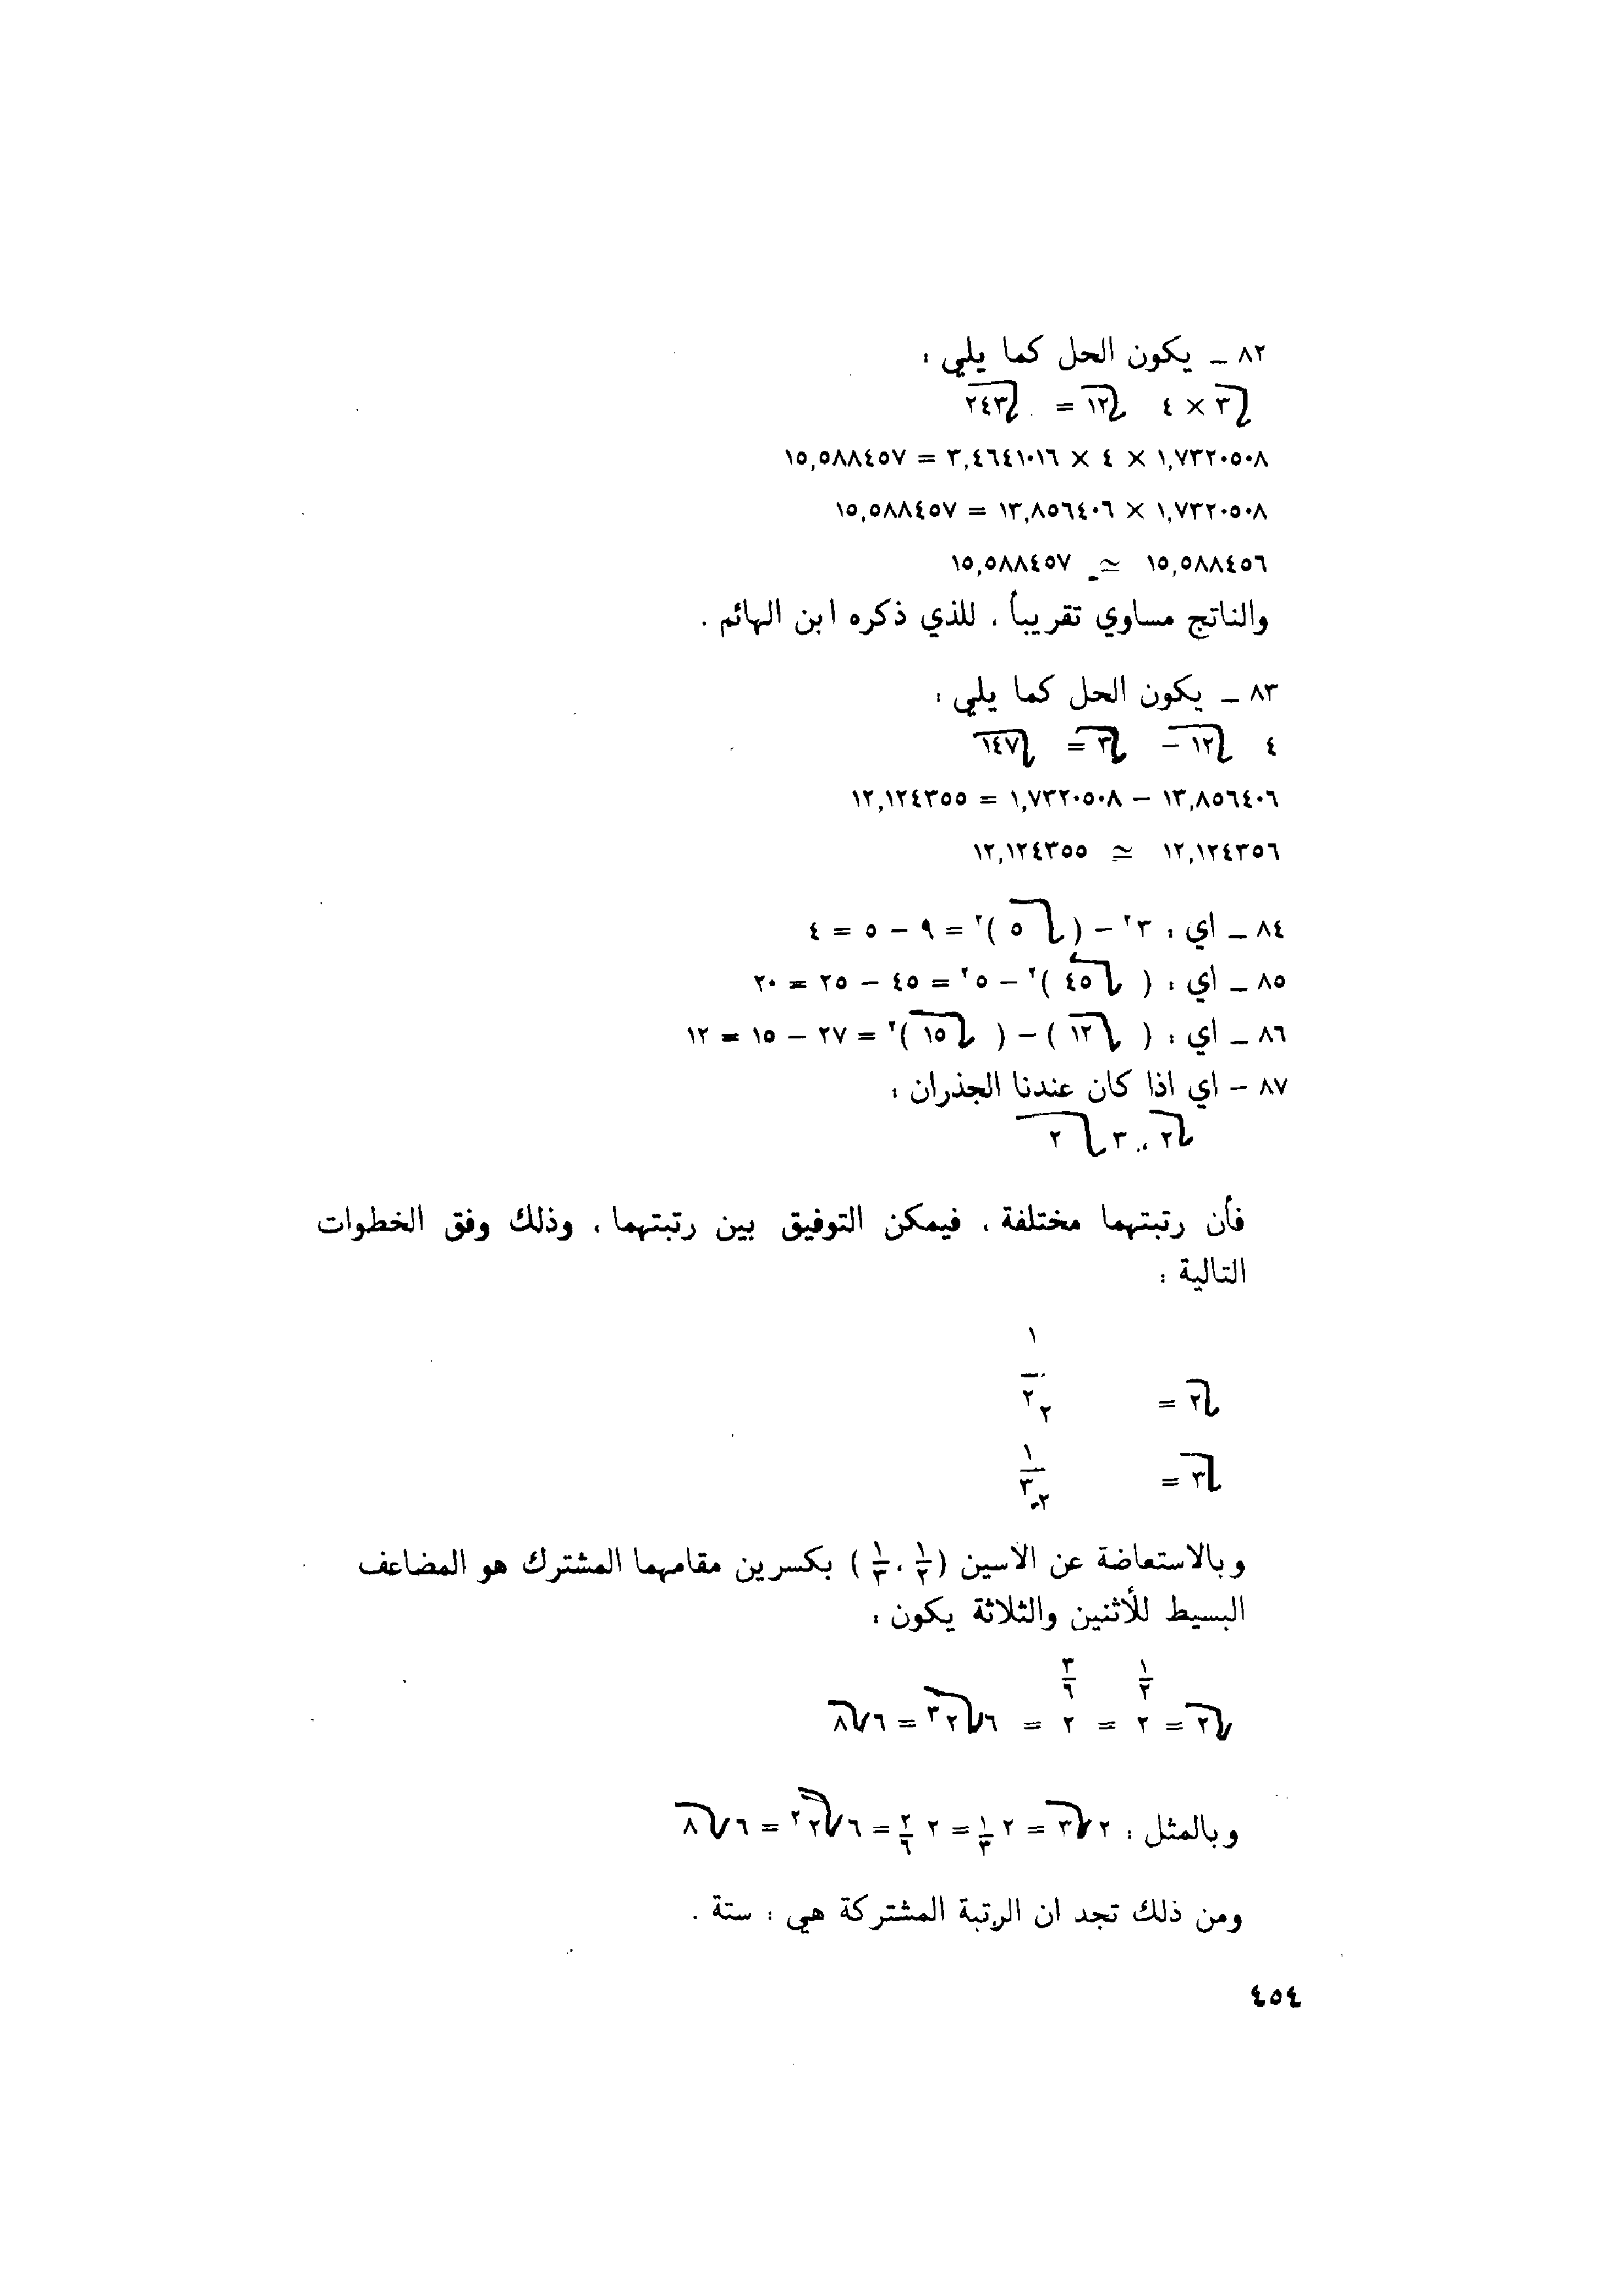 ٨٢ ـ يكون الحل كما يلي :
√٣ × ٤ √١٢ = √٢٤٣
١,٧٣٢٠٥٠٨ × ٤ × ٣,٤٦٤١٠١٦ = ١٥,٥٨٨٤٥٧
١,٧٣٢٠٥٠٨ × ١٣,٨٥٦٤٠٦ = ١٥,٥٨٨٤٥٧
١٥,٥٨٨٤٥٦ ≃ ١٥,٥٨٨٤٥٧
والناتج مساوي تقريباً ، للذي ذكره ابن الهائم .
٨٣ ـ يكون الحل كما يلي :
٤ √١٢ − √٣ = √١٤٧
١٣,٨٥٦٤٠٦ − ١,٧٣٢٠٥٠٨ = ١٢,١٢٤٣٥٥
١٢,١٢٤٣٥٦ ≃ ١٢,١٢٤٣٥٥
٨٤ ـ اي : ٣² − ( √٥ )² = ٩ − ٥ = ٤
٨٥ ـ اي : ( √٤٥ )² − ٥² = ٤٥ − ٢٥ = ٢٠
٨٦ ـ اي : ( √١٢ ) − ( √١٥ )² = ٢٧ − ١٥ = ١٢
٨٧ − اي اذا كان عندنا الجذران :
√٢ ، ٣ √٢
فأن رتبتهما مختلفة ، فيمكن التوفيق بين رتبتهما ، وذلك وفق الخطوات
التالية :
√٢ = ٢^(١/٢)
√٣ = ٢^(١/٣)
وبالاستعاضة عن الاسين (١/٢ ، ١/٣) بكسرين مقامهما المشترك هو المضاعف
البسيط للأثنين والثلاثة يكون :
√٢ = ٢^(١/٢) = ٢^(٣/٦) = ٦√٢³ = ٦√٨
وبالمثل : ٢√٣ = ٢^(١/٣) = ٢^(٢/٦) = ٦√٢² = ٦√٨
ومن ذلك تجد ان الرتبة المشتركة هي : ستة .
٤٥٤